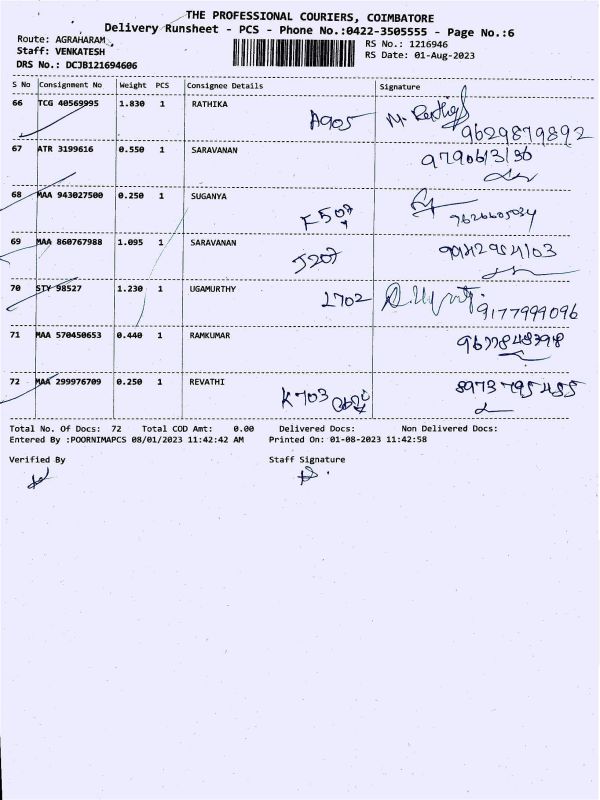 THE PROFESSIONAL COURIERS, COIMBATORE
Delivery Runsheet - PCS - Phone No.:0422-3505555 - Page No.:6
Route: AGRAHARAM
RS No.: 1216946
Staff: VENKATESH
RS Date: 01-Aug-2023
DRS No.: DCJB121694606
S No Consignment No Weight PCS Consignee Details Signature
66 TCG 40569995 1.830 1 RATHIKA A905
9629879892
67 ATR 3199616 0.550 1 SARAVANAN
68 MAA 943027500 0.250 1 SUGANYA F507
69 MAA 860767988 1.095 1 SARAVANAN J207
70 STY 98527 1.230 1 UGAMURTHY L702
9177999096
71 MAA 570450653 0.440 1 RAMKUMAR
72 MAA 299976709 0.250 1 REVATHI K703 8973795455
Total No. Of Docs: 72 Total COD Amt: 0.00 Delivered Docs: Non Delivered Docs:
Entered By :POORNIMAPCS 08/01/2023 11:42:42 AM Printed On: 01-08-2023 11:42:58
Verified By Staff Signature